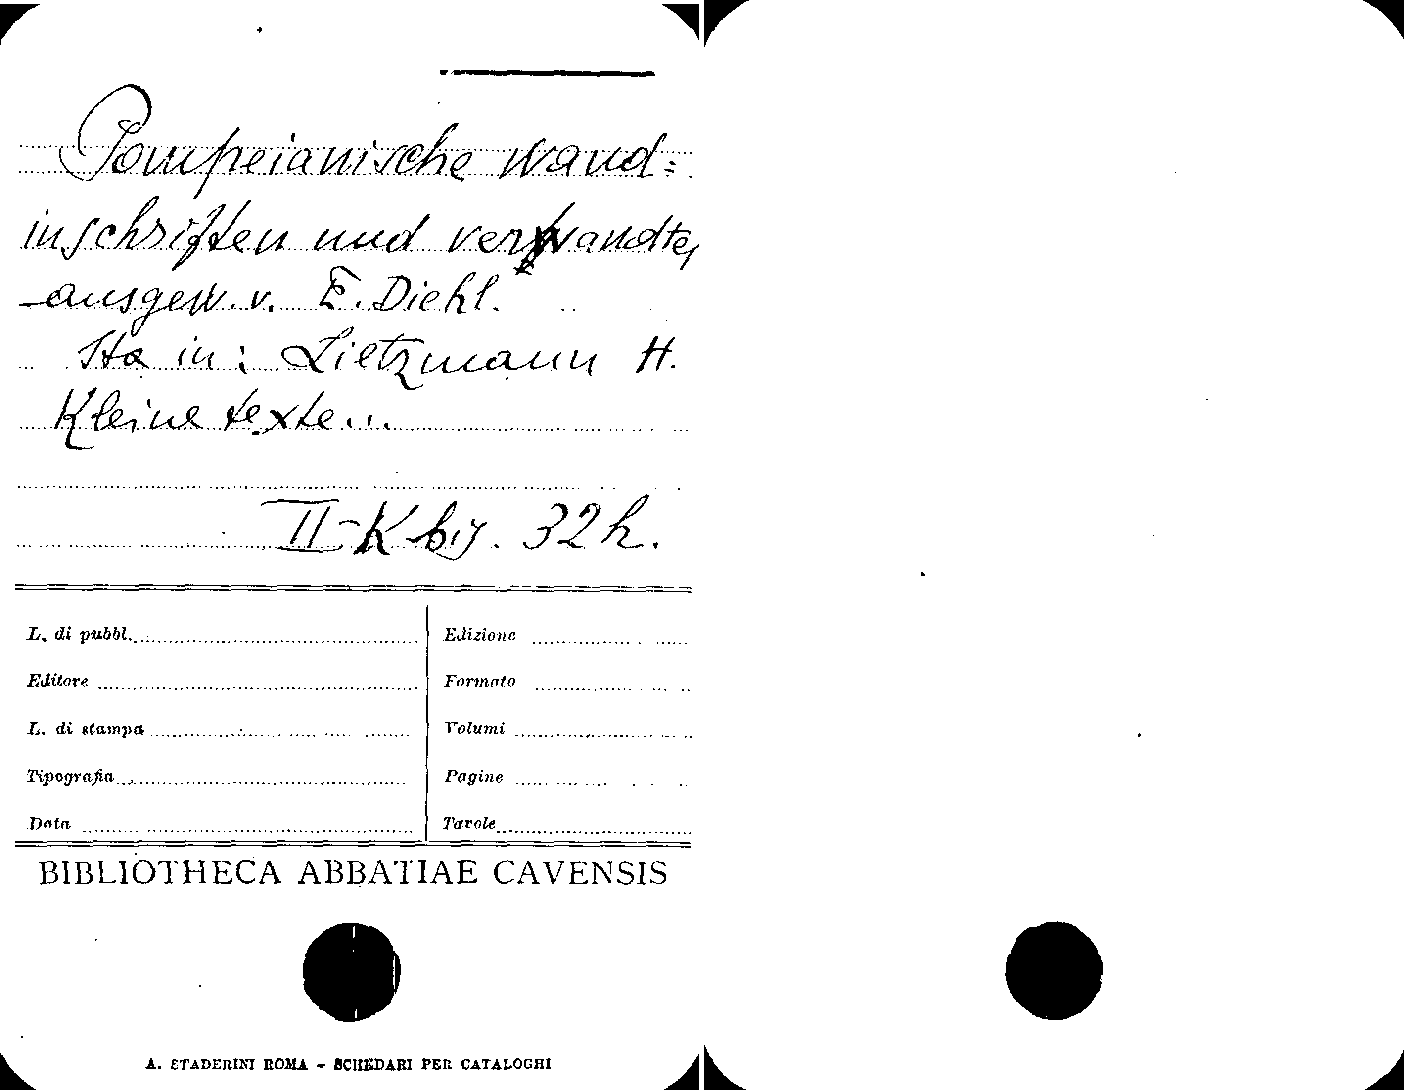 Pompeianische Wand=
inschriften und verwandtes
ausgew. v. E. Diehl.
Sta in: Lietzmann H.
Kleine texte...
II-K bis. 32h.
L. di pubbl.
Edizione
Editore
Formato
L. di stampa
Volumi
Tipografia
Pagine
Data
Tavole
BIBLIOTHECA ABBATIAE CAVENSIS
A. STADERINI ROMA - SCHEDARI PER CATALOGHI